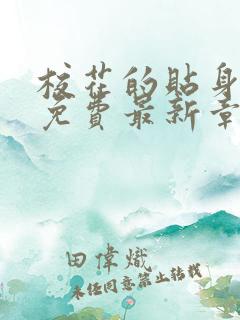 校花的貼身
免費最新章
田偉熾
未经同意禁止转载